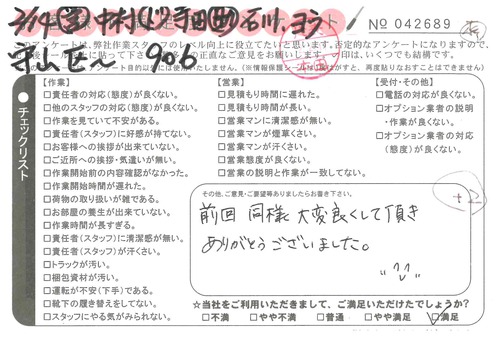 2/14 宝 中村(し) 寺田 石川、ヨラ
No 042689
このアンケートは、弊社作業スタッフのレベル向上に役立てたいと思います。否定的なアンケートになりますので、
906
いくつでも結構です。
（※情報保護シールははがすと、再度貼りなおすことはできません）
●チェックリスト
【作業】
□責任者の対応(態度)が良くない。
□他のスタッフの対応(態度)が良くない。
□作業を見ていて不安がある。
□責任者(スタッフ)に好感が持てない。
□お客様への挨拶が出来ていない。
□ご近所への挨拶・気遣いが無い。
□作業開始前の内容確認がなかった。
□作業開始時間が遅れた。
□荷物の取り扱いが雑である。
□お部屋の養生が出来ていない。
□作業時間が長すぎる。
□責任者(スタッフ)に清潔感が無い。
□責任者(スタッフ)が汗くさい。
□トラックが汚い。
□梱包資材が汚い。
□運転が不安(下手)である。
□靴下の履き替えをしてない。
□スタッフにやる気がみられない。
【営業】
□見積もり時間に遅れた。
□見積もり時間が長い。
□営業マンに清潔感が無い。
□営業マンが煙草くさい。
□営業マンが汗くさい。
□営業態度が良くない。
□営業の説明と作業が一致してない。
【受付・その他】
□電話の対応が良くない。
□オプション業者の説明
・作業が良くない。
□オプション業者の対応
(態度)が良くない。
その他、ご意見・ご要望等ありましたらお書き下さい。
+2
前回同様大変良くして頂き
ありがとうございました。
☆当社をご利用いただきまして、ご満足いただけたでしょうか？
□不満 □やや不満 □普通 □やや満足 ☑満足